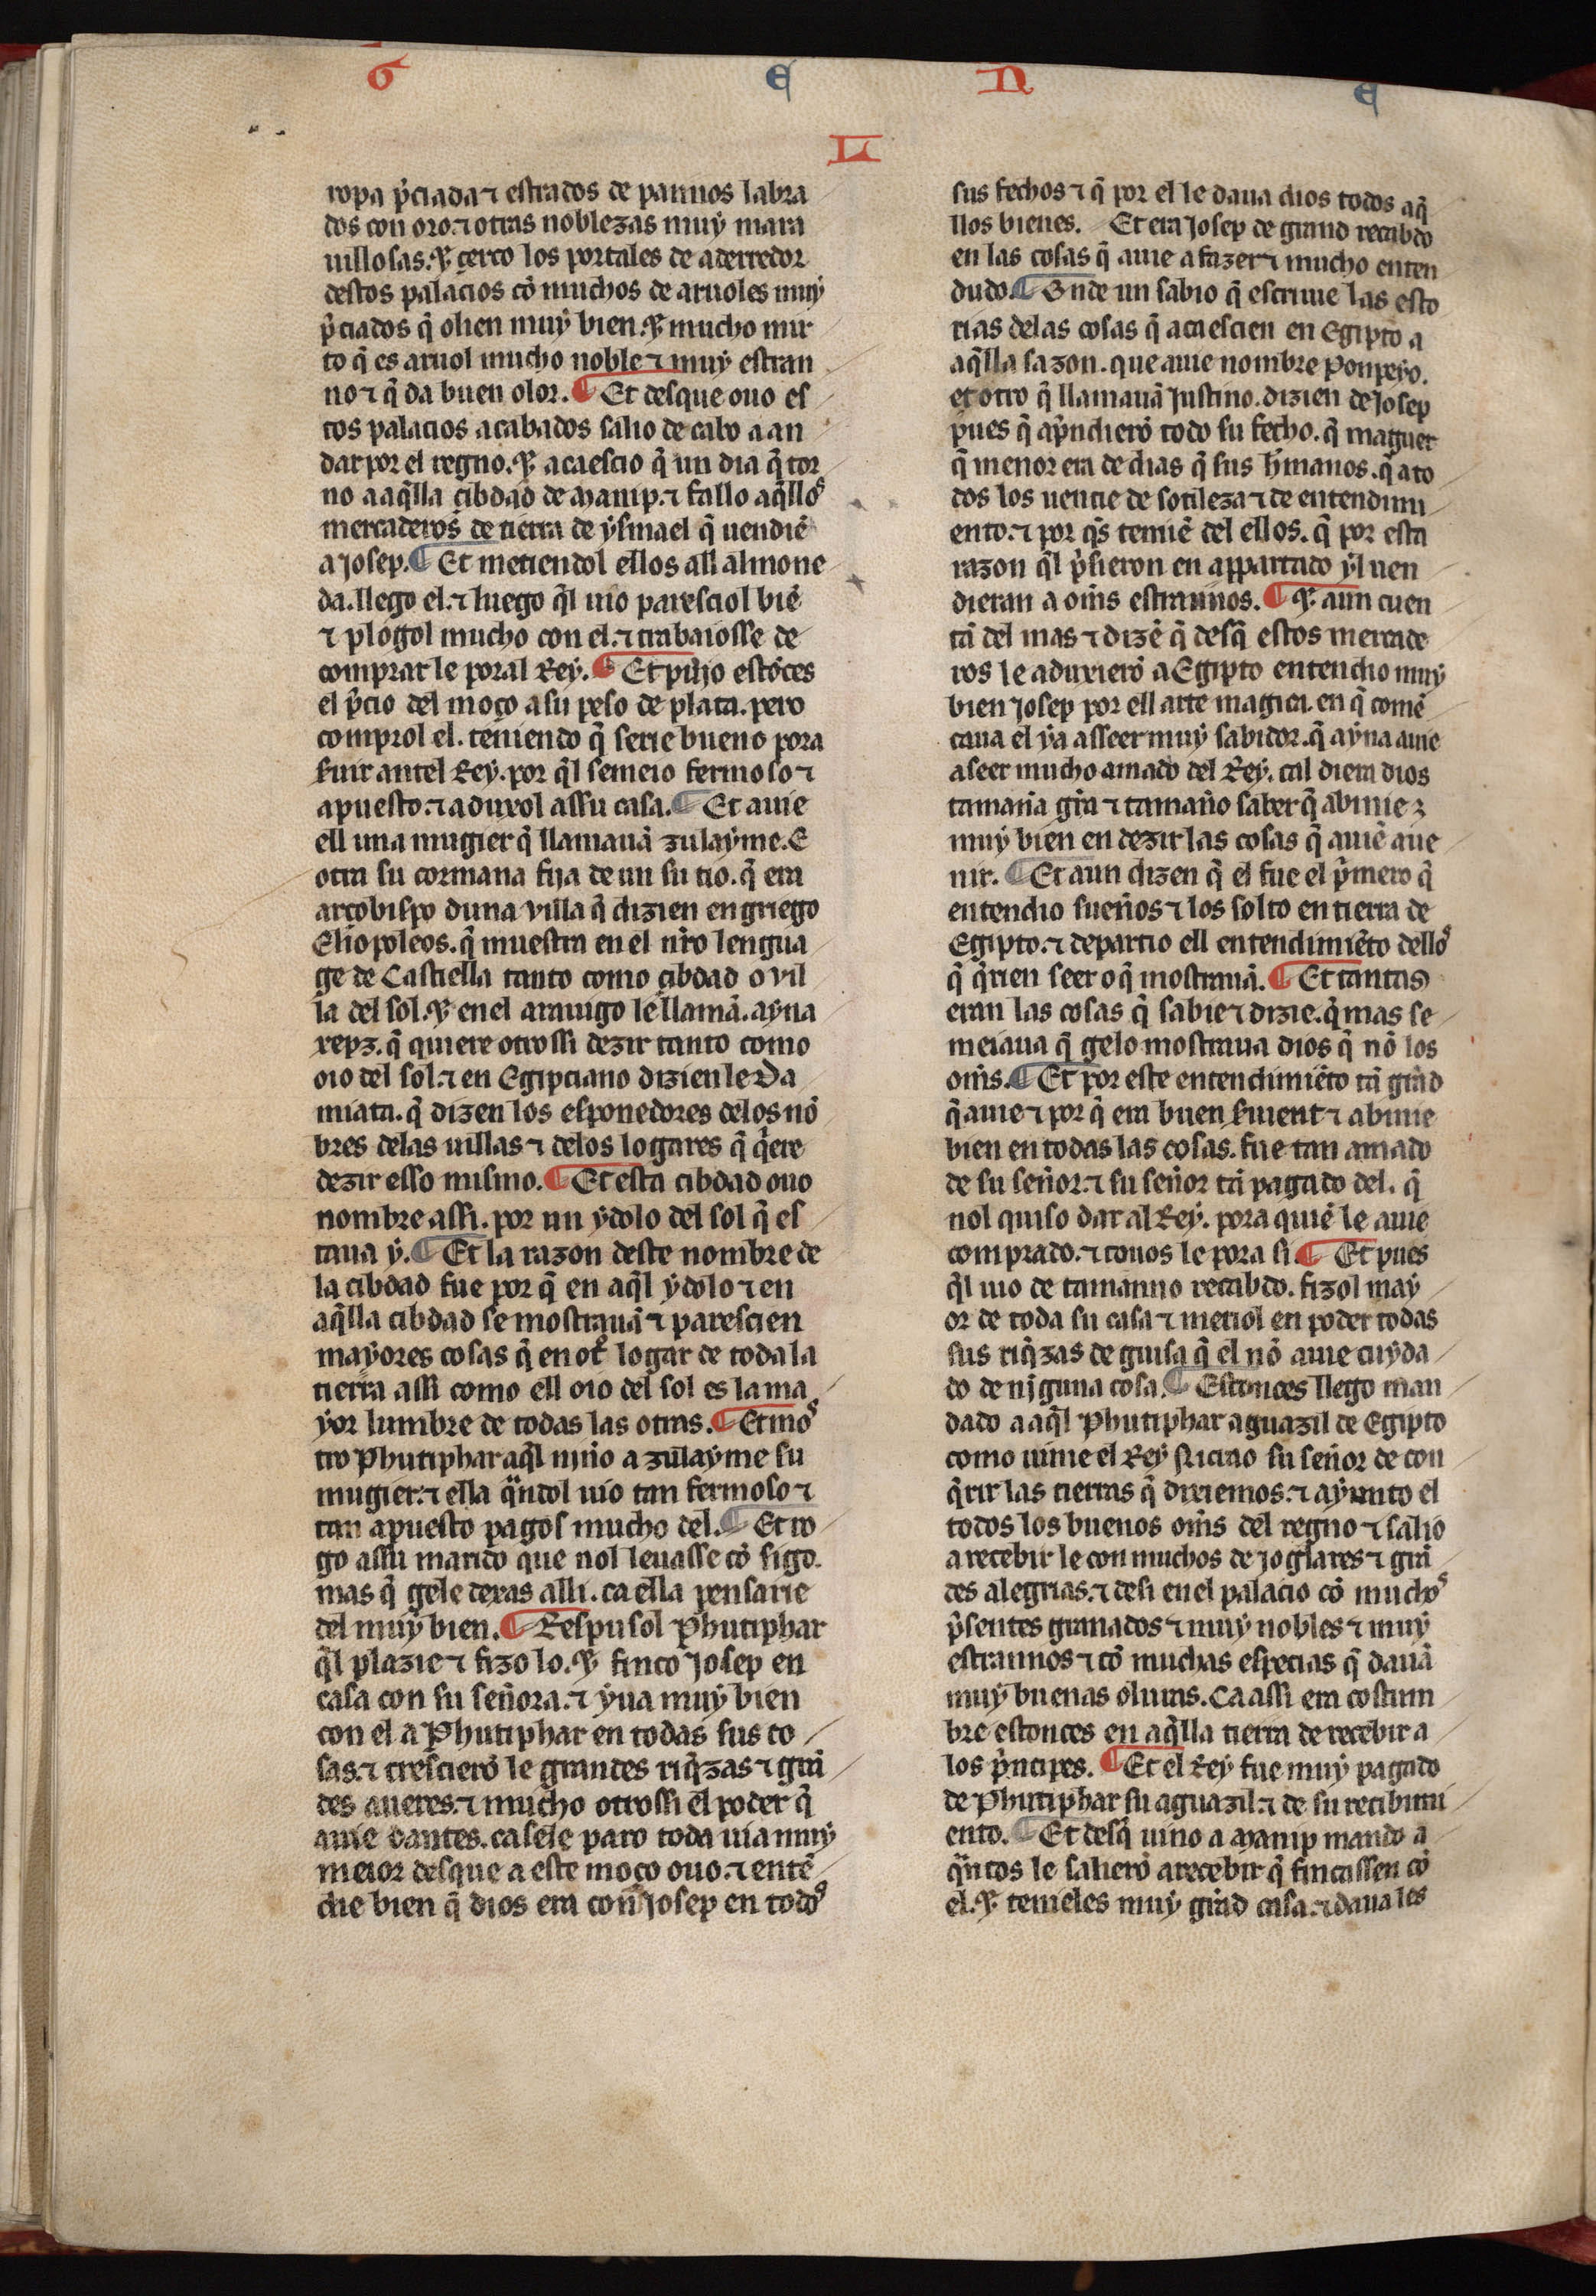 G E N E
L
ropa p̃ciada ⁊ estrados de pannos labra
dos con oro. ⁊ otras noblezas muẏ mara
uillosas. ⁊ çerco los portales de aderredor
destos palacios cõ muchos de aruoles muẏ
p̃ciados q̃ olien muẏ bien. ⁊ mucho mir
to q̃ es aruol mucho noble ⁊ muẏ estran
no ⁊ q̃ da buen olor. ¶ Et desque ouo es
tos palacios acabados salio de cabo a an
dar por el regno. ⁊ acaescio q̃ un dia q̃ tor
no a aq̃lla cibdad de Manip. ⁊ fallo aq̃llos
mercaderos de tierra de ẏsmael q̃ uendiẽ
a Josep. ¶ Et metiendol ellos all almone
da. llego el. ⁊ luego q̃l uio paresciol biẽ
⁊ plogol mucho con el. ⁊ trabaiosse de
comprar le poral Reẏ. ¶ Et puio estõces
el p̃cio del moço a su peso de plata. pero
comprol el. teniendo q̃ serie bueno pora
ſuir antel Reẏ. por q̃l semeio fermoso ⁊
apuesto. ⁊ aduxol assu casa. ¶ Et auie
ell una mugier q̃ llamauã zulaẏme. E
otra su cormana fija de un su tio. q̃ era
arçobispo duna villa q̃ dizien en griego
Eliopoleos. q̃ muestra en el nr̃o lengua
ge de Castiella tanto como cibdad o vil
la del sol. ⁊ en el arauigo le llamã. aẏna
xepz. q̃ quiere otrossi dezir tanto como
oio del sol. ⁊ en Egipciano dizien le Da
miata. q̃ dizen los esponedores delos nõ
bres delas uillas ⁊ delos logares q̃ q̃ere
dezir esso mismo. ¶ Et esta cibdad ouo
nombre assi. por un ẏdolo del sol q̃ es
taua ẏ. ¶ Et la razon deste nombre de
la cibdad fue por q̃ en aq̃l ẏdolo ⁊ en
aq̃lla cibdad se mostrauã ⁊ parescien
maẏores cosas q̃ en otͬ logar de toda la
tierra assi como ell oio del sol es la ma
ẏor lumbre de todas las otras. ¶ Et mos
tro Phutiphar aq̃l nino a zulaẏme su
mugier. ⁊ ella q̃ndol uio tan fermoso ⁊
tan apuesto pagos mucho del. ¶ Et ro
go assu marido que nol leuasse cõ sigo.
mas q̃ gele dexas alli. ca ella pensarie
del muẏ bien. ¶ Respusol Phutiphar
q̃l plazie ⁊ fizo lo. ⁊ finco Josep en
casa con su señora. ⁊ ẏua muẏ bien
con el a Phutiphar en todas sus co
sas. ⁊ crescierõ le grandes riq̃zas ⁊ grã
des aueres. ⁊ mucho otrossi el poder q̃
auie dantes. ca sele paro toda uia muẏ
meior desque a este moço ouo. ⁊ entẽ
die bien q̃ dios era con Josep en todos
sus fechos ⁊ q̃ por el le daua dios todos aq̃
llos bienes. Et era Josep de grand recabdo
en las cosas q̃ auie a fazer ⁊ mucho enten
dudo. ¶ Onde un sabio q̃ escriuie las esto
rias delas cosas q̃ acaescien en Egipto a
aq̃lla sazon. que auie nombre Ponpeẏo.
et otro q̃ llamauã Justino. dizien de Josep
pues q̃ ap̃ndierõ todo su fecho. q̃ maguer
q̃ menor era de dias q̃ sus h̃manos. q̃ a to
dos los uencie de sotileza ⁊ de entendimi
ento. ⁊ por q̃s temiẽ del ellos. q̃ por esta
razon q̃l p̃sieron en appartado ẏl uen
dieran a om̃s estrannos. ¶ ⁊ aun cuen
tã del mas ⁊ dizẽ q̃ desq̃ estos mercade
ros le aduxierõ a Egipto entendio muẏ
bien Josep por ell arte magica. en q̃ comẽ
çaua el ẏa asseer muẏ sabidor. q̃ aẏna auie
a seer mucho amado del Reẏ. tal diera dios
tamaña grã ⁊ tamaño saber q̃ abiniez
muẏ bien en dezir las cosas q̃ auiẽ aue
nir. ¶ Et aun dizen q̃ el fue el p̃mero q̃
entendio sueños ⁊ los solto en tierra de
Egipto. ⁊ departio ell entendimiẽto dellos
q̃ q̃rien seer o q̃ mostrauã. ¶ Et tantas
eran las cosas q̃ sabie ⁊ dizie. q̃ mas se
meiaua q̃ gelo mostraua dios q̃ nõ los
om̃s. ¶ Et por este entendimiẽto tã grãd
q̃ auie ⁊ por q̃ era buen ſuient ⁊ abinie
bien en todas las cosas. fue tan amado
de su señor. ⁊ su señor tã pagado del. q̃
nol quiso dar al Reẏ. pora quiẽ le auie
comprado. ⁊ touos le pora si. ¶ Et pues
q̃l uio de tamanno recabdo. fizol maẏ
or de toda su casa ⁊ metiol en poder todas
sus riq̃zas de guisa q̃ el nõ auie cuẏda
do de niguna cosa. ¶ Estonces llego man
dado a aq̃l Phutiphar aguazil de Egipto
como uinie el Reẏ Nicrao su señor de con
q̃rir las tierras q̃ dixiemos. ⁊ aẏunto el
todos los buenos om̃s del regno ⁊ salio
a recebir le con muchos de joglares ⁊ grã
des alegrias. ⁊ desi en el palacio cõ muchos
p̃sentes granados ⁊ muẏ nobles ⁊ muẏ
estrannos ⁊ cõ muchas especias q̃ dauã
muẏ buenas oluras. Ca assi era costum
bre estonces en aq̃lla tierra de recebir a
los p̃ncipes. ¶ Et el Reẏ fue muẏ pagado
de Phutiphar su aguazil. ⁊ de su recibimi
ento. ¶ Et desq̃ uino a Manip mando a
q̃ntos le salierõ a recebir q̃ fincassen cõ
el. ⁊ tenieles muẏ grãd casa. ⁊ dauales